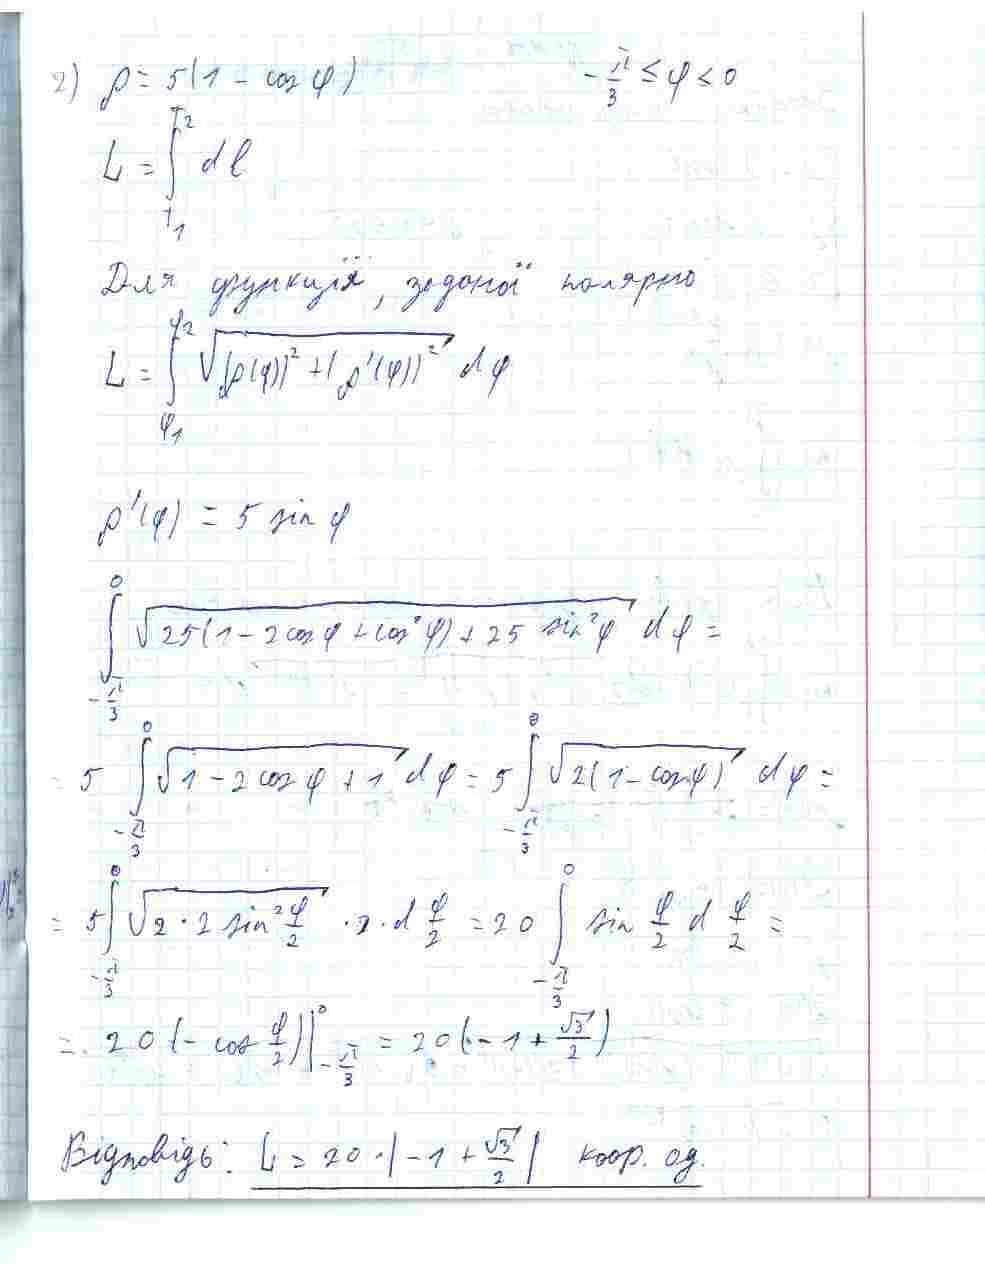 2) ρ = 5(1 - cos φ)   -π/3 ≤ φ ≤ 0
L = ∫_{T₁}^{T₂} dl
Для функції, заданої полярно
L = ∫_{φ₁}^{φ₂} √((ρ(φ))² + (ρ'(φ))²) dφ
ρ'(φ) = 5 sin φ
∫_{-π/3}^{0} √(25(1 - 2cos φ + cos² φ) + 25 sin² φ) dφ =
= 5 ∫_{-π/3}^{0} √(1 - 2cos φ + 1) dφ = 5 ∫_{-π/3}^{0} √(2(1 - cos φ)) dφ =
= 5 ∫_{-π/3}^{0} √(2 · 2 sin² φ/2) · 2 · d φ/2 = 20 ∫_{-π/3}^{0} sin φ/2 d φ/2 =
= 20 (- cos φ/2)|_{-π/3}^{0} = 20(-1 + √3/2)
Відповідь: L = 20 · |-1 + √3/2| коор. од.